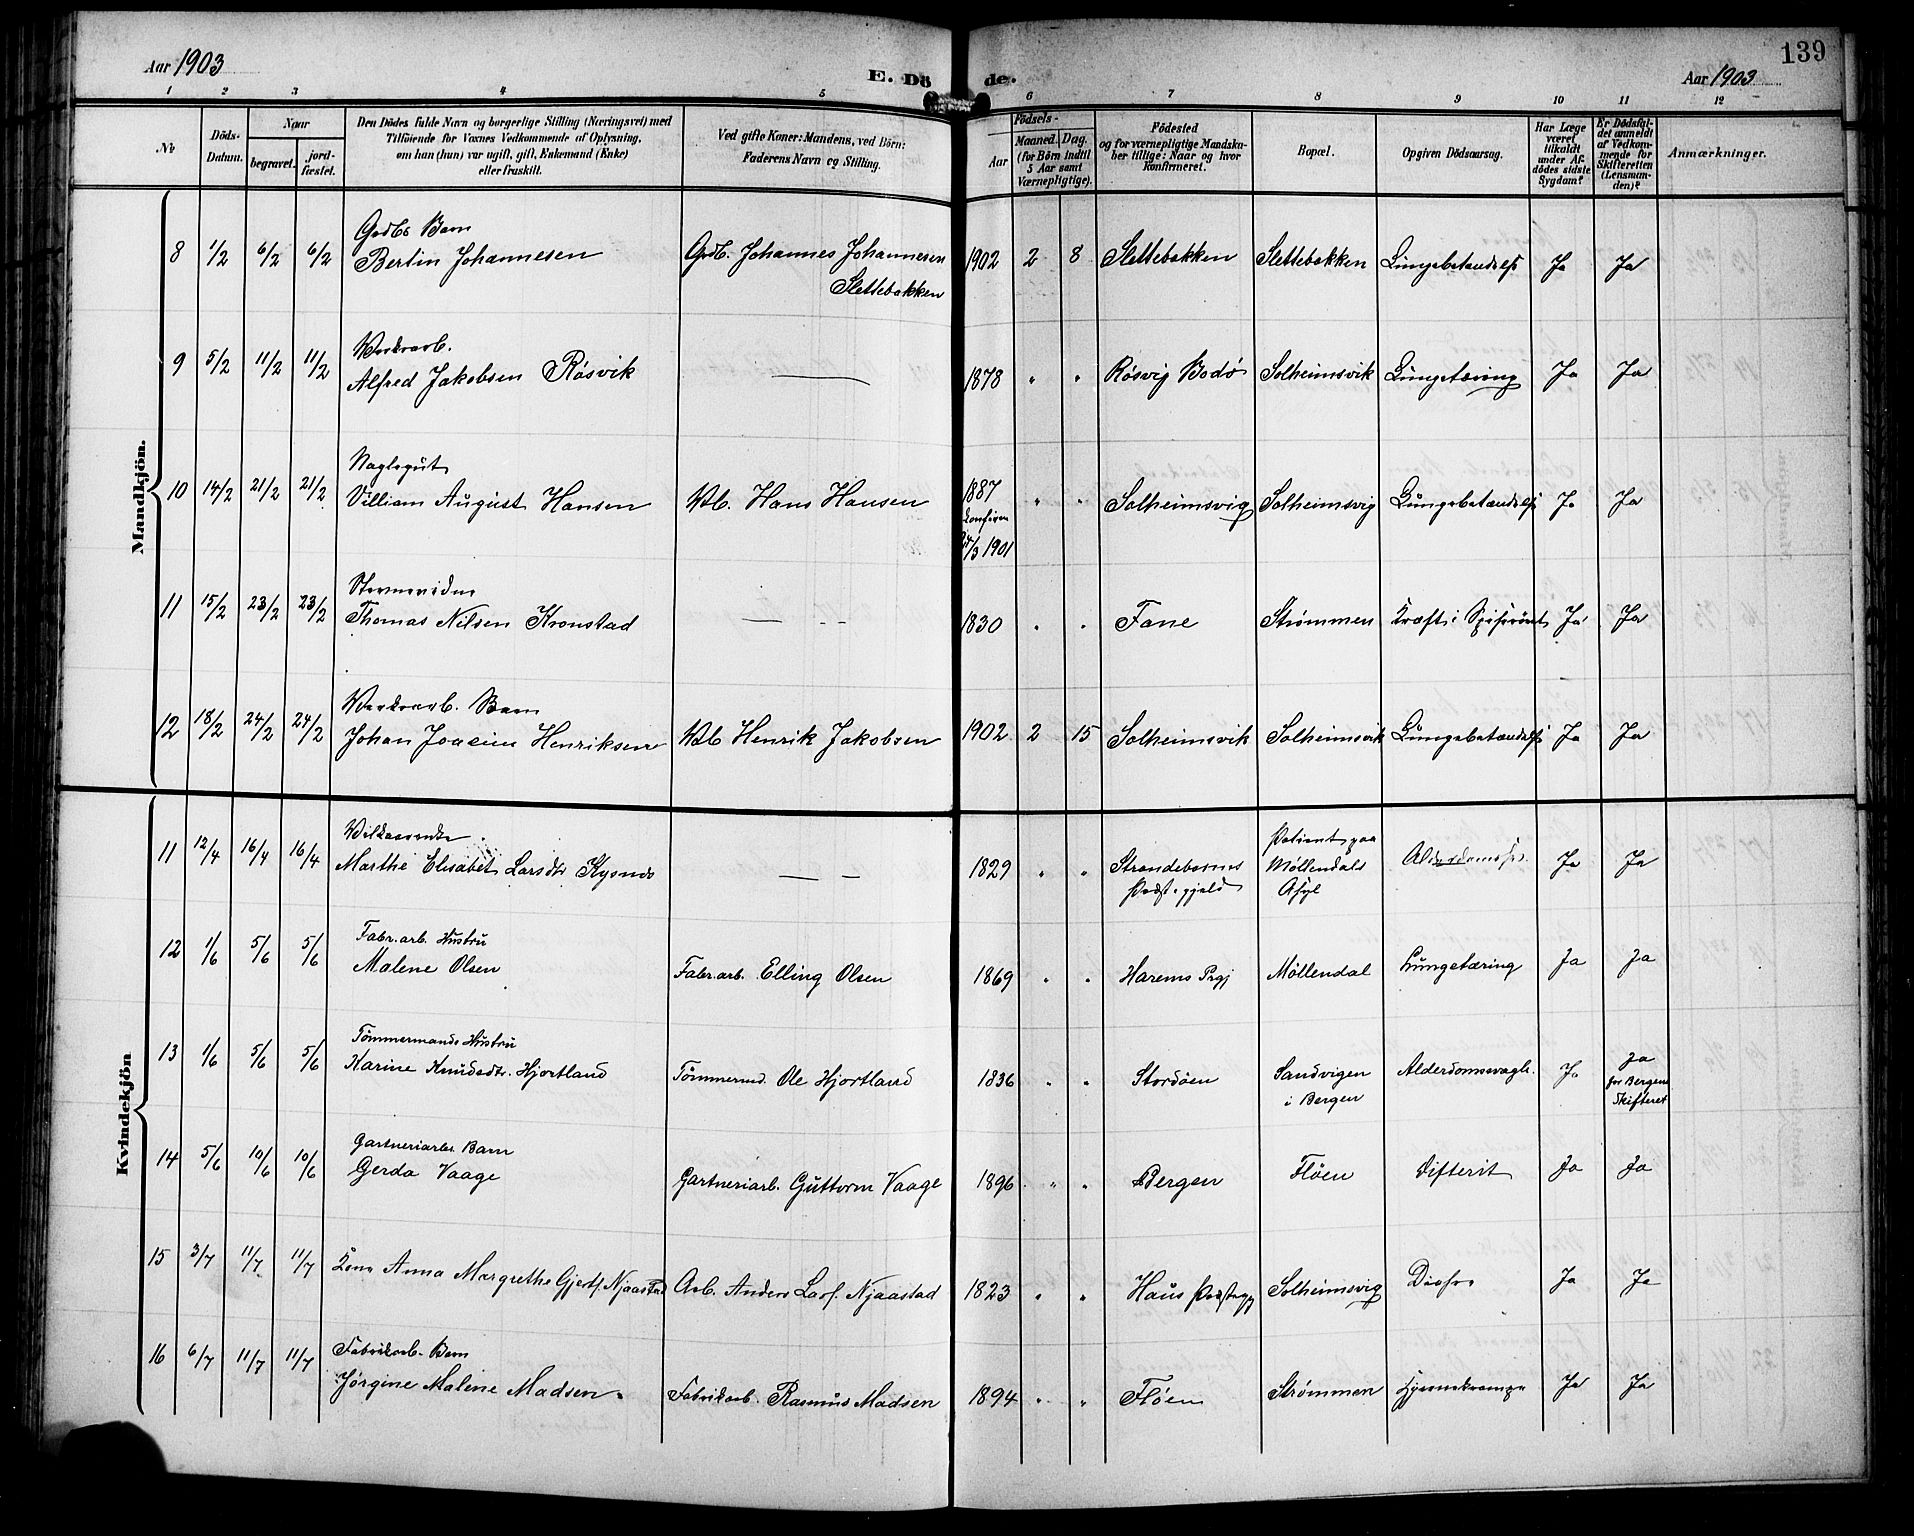 Aar 1903
E. Dö
de.
Aar 1903
139
1 2 3 4 5 6 7 8 9 10 11 12
No
Döds-
Datum.
Naar
begravet.
jord-
fæstet.
Den Dödes fulde Navn og borgerlige Stilling (Næringsvei) med
Tilföiende for Voxnes Vedkommende af Oplysning,
om han (hun) var ugift, gift, Enkemand (Enke)
eller fraskilt.
Ved gifte Koner: Mandens, ved Börn:
Faderens Navn og Stilling.
Födsels-
Aar
Maaned. Dag.
(for Börn indtil
5 Aar samt
Værnepligtige).
Födested
og for værnepligtige Mandska-
ber tillige: Naar og hvor
Konfirmeret.
Bopæl.
Opgiven Dödsaarsag.
Har Læge
været
tilkaldt
under Af-
dödes sidste
Sygdom?
Er Dödsfal-
det anmeldt
af Vedkom-
mende for
Skifteretten
(Lensman-
den)?
Anmærkninger.
Mandkjön.
8 1/2 6/2 6/2 Grdbs Barn
Bertin Johannesen
Grdb. Johannes Johannesen
Slettebakken
1902 2 8 Slettebakken Slettebakken Lungebetændelse Ja Ja
9 5/2 11/2 11/2 Verksarb.
Alfred Jakobsen Røsvik — 1878 " " Røsvig Bodø Solheimsvik Lungetæring Ja Ja
10 14/2 21/2 21/2 Naglegut
Villiam August Hansen Vb. Hans Hansen
1887
1901
" " Solheimsvig Solheimsvig Lungebetændelse Ja Ja
11 15/2 23/2 23/2
Thomas Nilsen Kronstad — -- 1830 " " Fane Strømmen Kræft i Spiserøret Ja Ja
12 18/2 24/2 24/2 Verksarb. Barn
Johan Joacim Henriksen Vb Henrik Jakobsen 1902 2 15 Solheimsvik Solheimsvik Lungebetændelse Ja Ja
Kvindekjön
11 12/4 16/4 16/4
Marthe Elisabet Larsdtr Kysnes — — 1829 " " Strandebarms
Præstegjeld
Patient paa
Møllendals
Asyl
Ja Ja
12 1/6 5/6 5/6 Fabr.arb. Hustru
Malene Olsen Fabr.arb. Elling Olsen 1869 " " Harems Prgj Møllendal Lungetæring Ja Ja
13 1/6 5/6 5/6 Tømmermands Hustru
Karine Knudsdtr. Hjortland Tømmermd. Ole Hjortland 1836 " " Stordøen Sandvigen
i Bergen
Alderdomsvagh. Ja Ja
for Bergens
Skifteret
14 5/6 10/6 10/6 Gartneriarbs Barn
Gerda Vaage Gartneriarb. Guttorm Vaage 1896 " " Bergen Fløen Difterit Ja Ja
15 3/7 11/7 11/7 Kone Anna Margrethe Gjertsd. Njaastad Arb. Anders Lars. Njaastad 1823 " " Haus Præstegj Solheimsvig Ja Ja
16 6/7 11/7 11/7 Fabrikarb. Barn
Jørgine Malene Madsen. Fabrikarb. Rasmus Madsen 1894 " " Fløen Strømmen Hjernekrampe Ja Ja